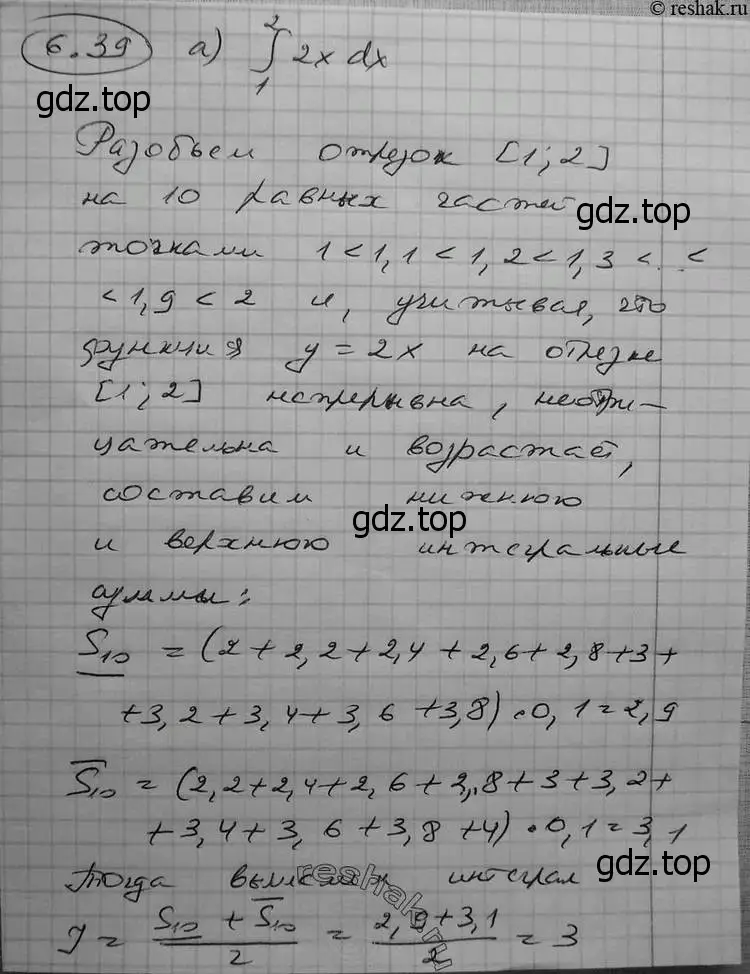 © reshak.ru
6.39 а) ∫₁² 2x dx
gdz.top
Разобьем отрезок [1; 2]
на 10 равных частей
gdz.top
точками 1 < 1,1 < 1,2 < 1,3 < .. <
< 1,9 < 2 и, учитывая, что
функция y = 2x на отрезке
[1; 2] непрерывна, неотри-
цательна и возрастает,
составим нижнюю
gdz.top
и верхнюю интегральные
суммы:
S₁₀ = (2 + 2,2 + 2,4 + 2,6 + 2,8 + 3 +
+ 3,2 + 3,4 + 3,6 + 3,8) · 0,1 = 2,9
S̅₁₀ = (2,2 + 2,4 + 2,6 + 2,8 + 3 + 3,2 +
+ 3,4 + 3,6 + 3,8 + 4) · 0,1 = 3,1
gdz.top
Тогда вычислим интеграл
reshak.ru
J = (S₁₀ + S̅₁₀)/2 = (2,9 + 3,1)/2 = 3